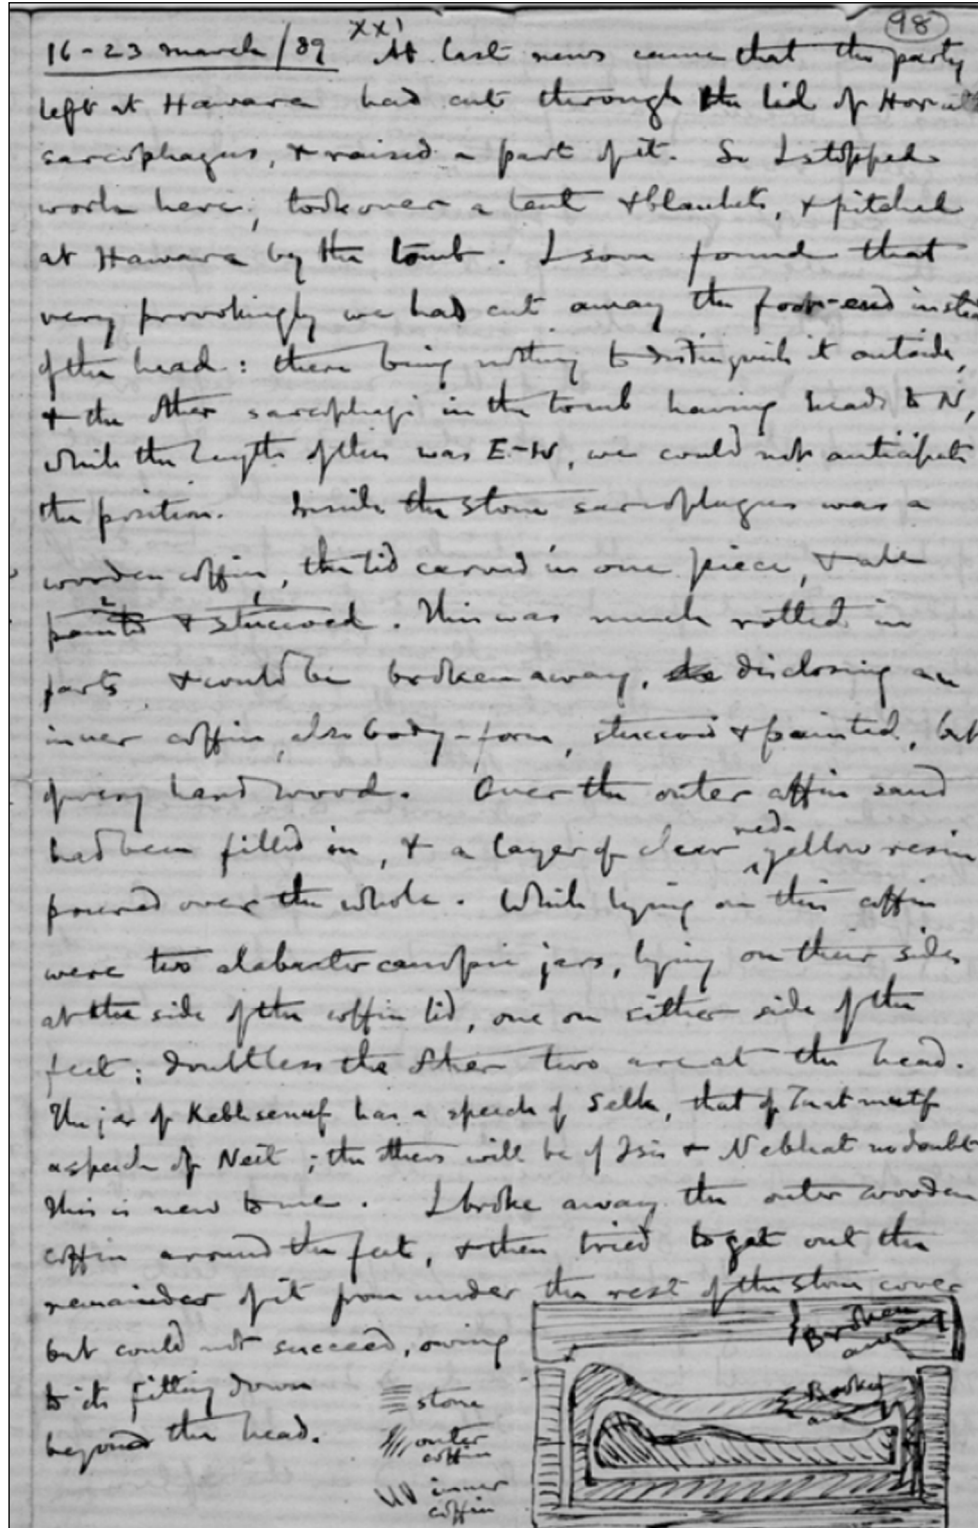 98
16-23 March/89 XXI At last news came that the party
left at Hawara had cut through the lid of Horuta's
sarcophagus, & raised a part of it. So I stopped
work here, took over a tent & blankets, & pitched
at Hawara by the tomb. I soon found that
very provokingly we had cut away the foot-end instead
of the head: there being nothing to distinguish it outside,
& the other sarcophagi in the tomb having heads to N,
while the length of this was E-W, we could not anticipate
the position. Inside the stone sarcophagus was a
wooden coffin, the lid carved in one piece, & all
2 painted & 1 stuccoed. This was much rotted in
parts & could be broken away, disclosing an
inner coffin, also body-form, stuccoed & painted, but
of very hard wood. Over the outer coffin sand
had been filled in, & a layer of clear red-yellow resin
poured over the whole. While lying on this coffin
were two alabaster canopic jars, lying on their sides
at the side of the coffin lid, one on either side of the
feet; doubtless the other two are at the head.
The jar of Kebhsenuf has a speech of Selk, that of Tuatmutf
a speech of Neit; the others will be of Isis & Nebhat no doubt
this is new to me. I broke away the outer wooden
coffin around the feet, & then tried to get out the
remainder of it from under the rest of the stone cover
but could not succeed, owing
to its fitting down
beyond the head.
stone
outer
coffin
inner
coffin
Broken
away
Broken